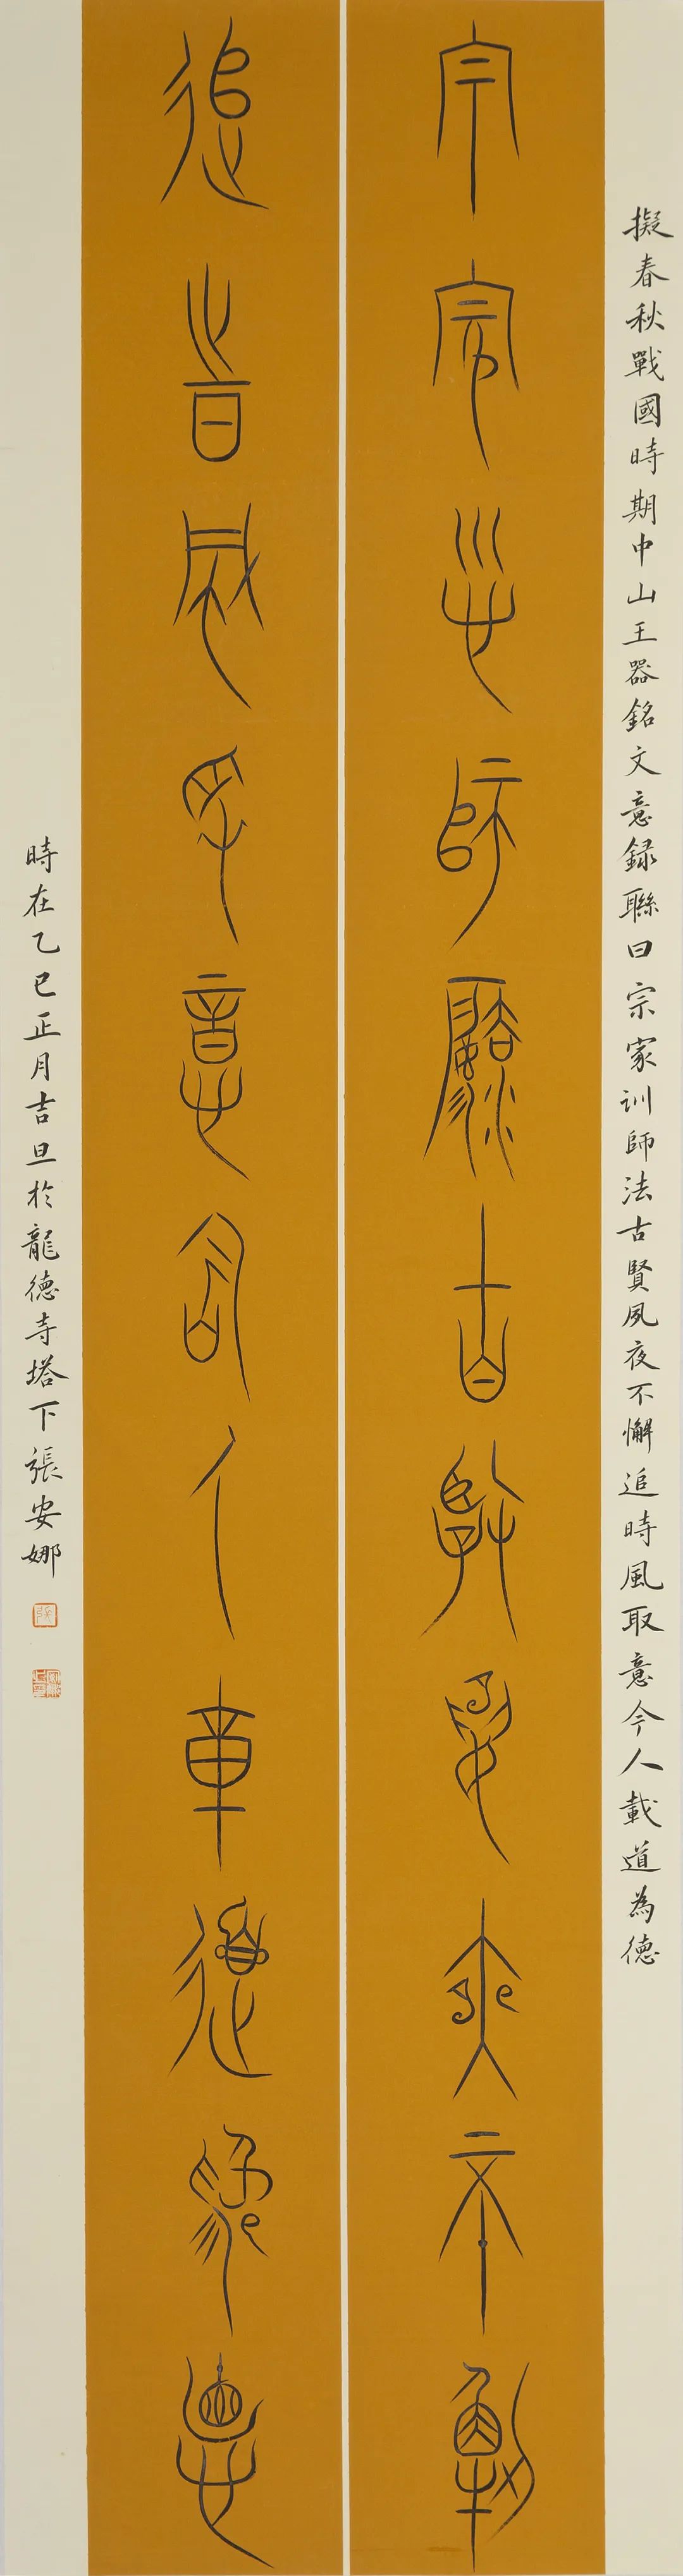 擬春秋戰國時期中山王器銘文意録聯曰宗家訓師法古賢夙夜不懈追時風取意今人載道為德
宗家訓師灋古賢夙夜不懈
追時風取意今人載道為德
時在乙巳正月吉旦於龍德寺塔下張安娜